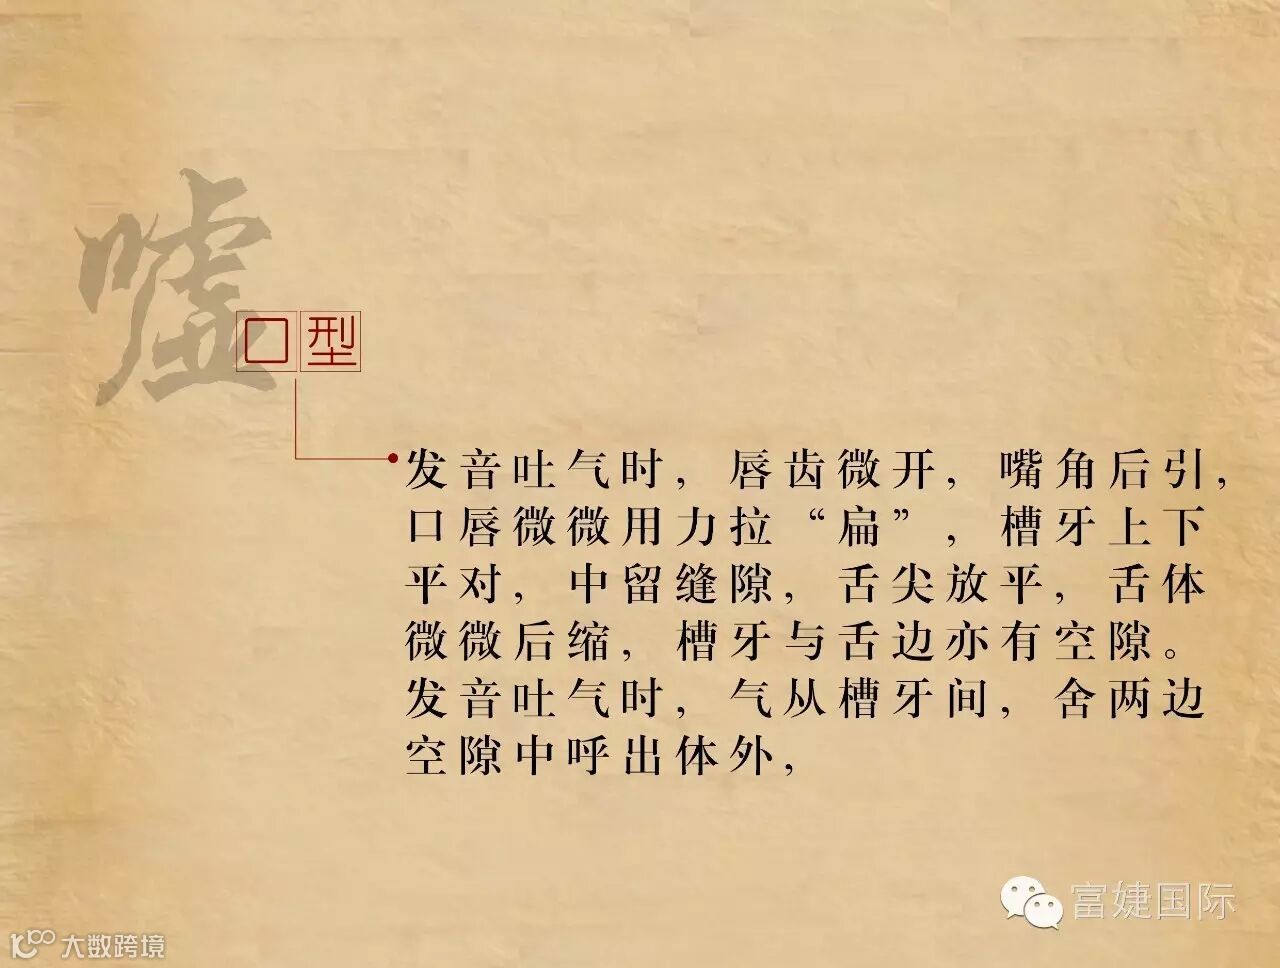 嘘
口型
发音吐气时，唇齿微开，嘴角后引，
口唇微微用力拉“扁”，槽牙上下
平对，中留缝隙，舌尖放平，舌体
微微后缩，槽牙与舌边亦有空隙。
发音吐气时，气从槽牙间，舍两边
空隙中呼出体外，
富婕国际
大数跨境